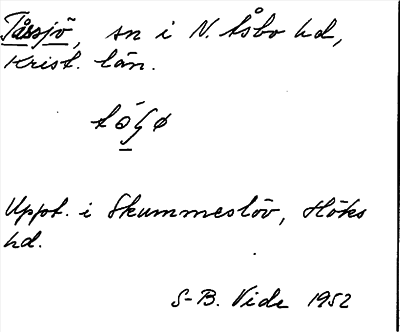 Tåssjö, sn i N. Åsbo hd,
Krist. län.
Uppt. i Skummeslöv, Höks
hd.
S-B. Vide 1952